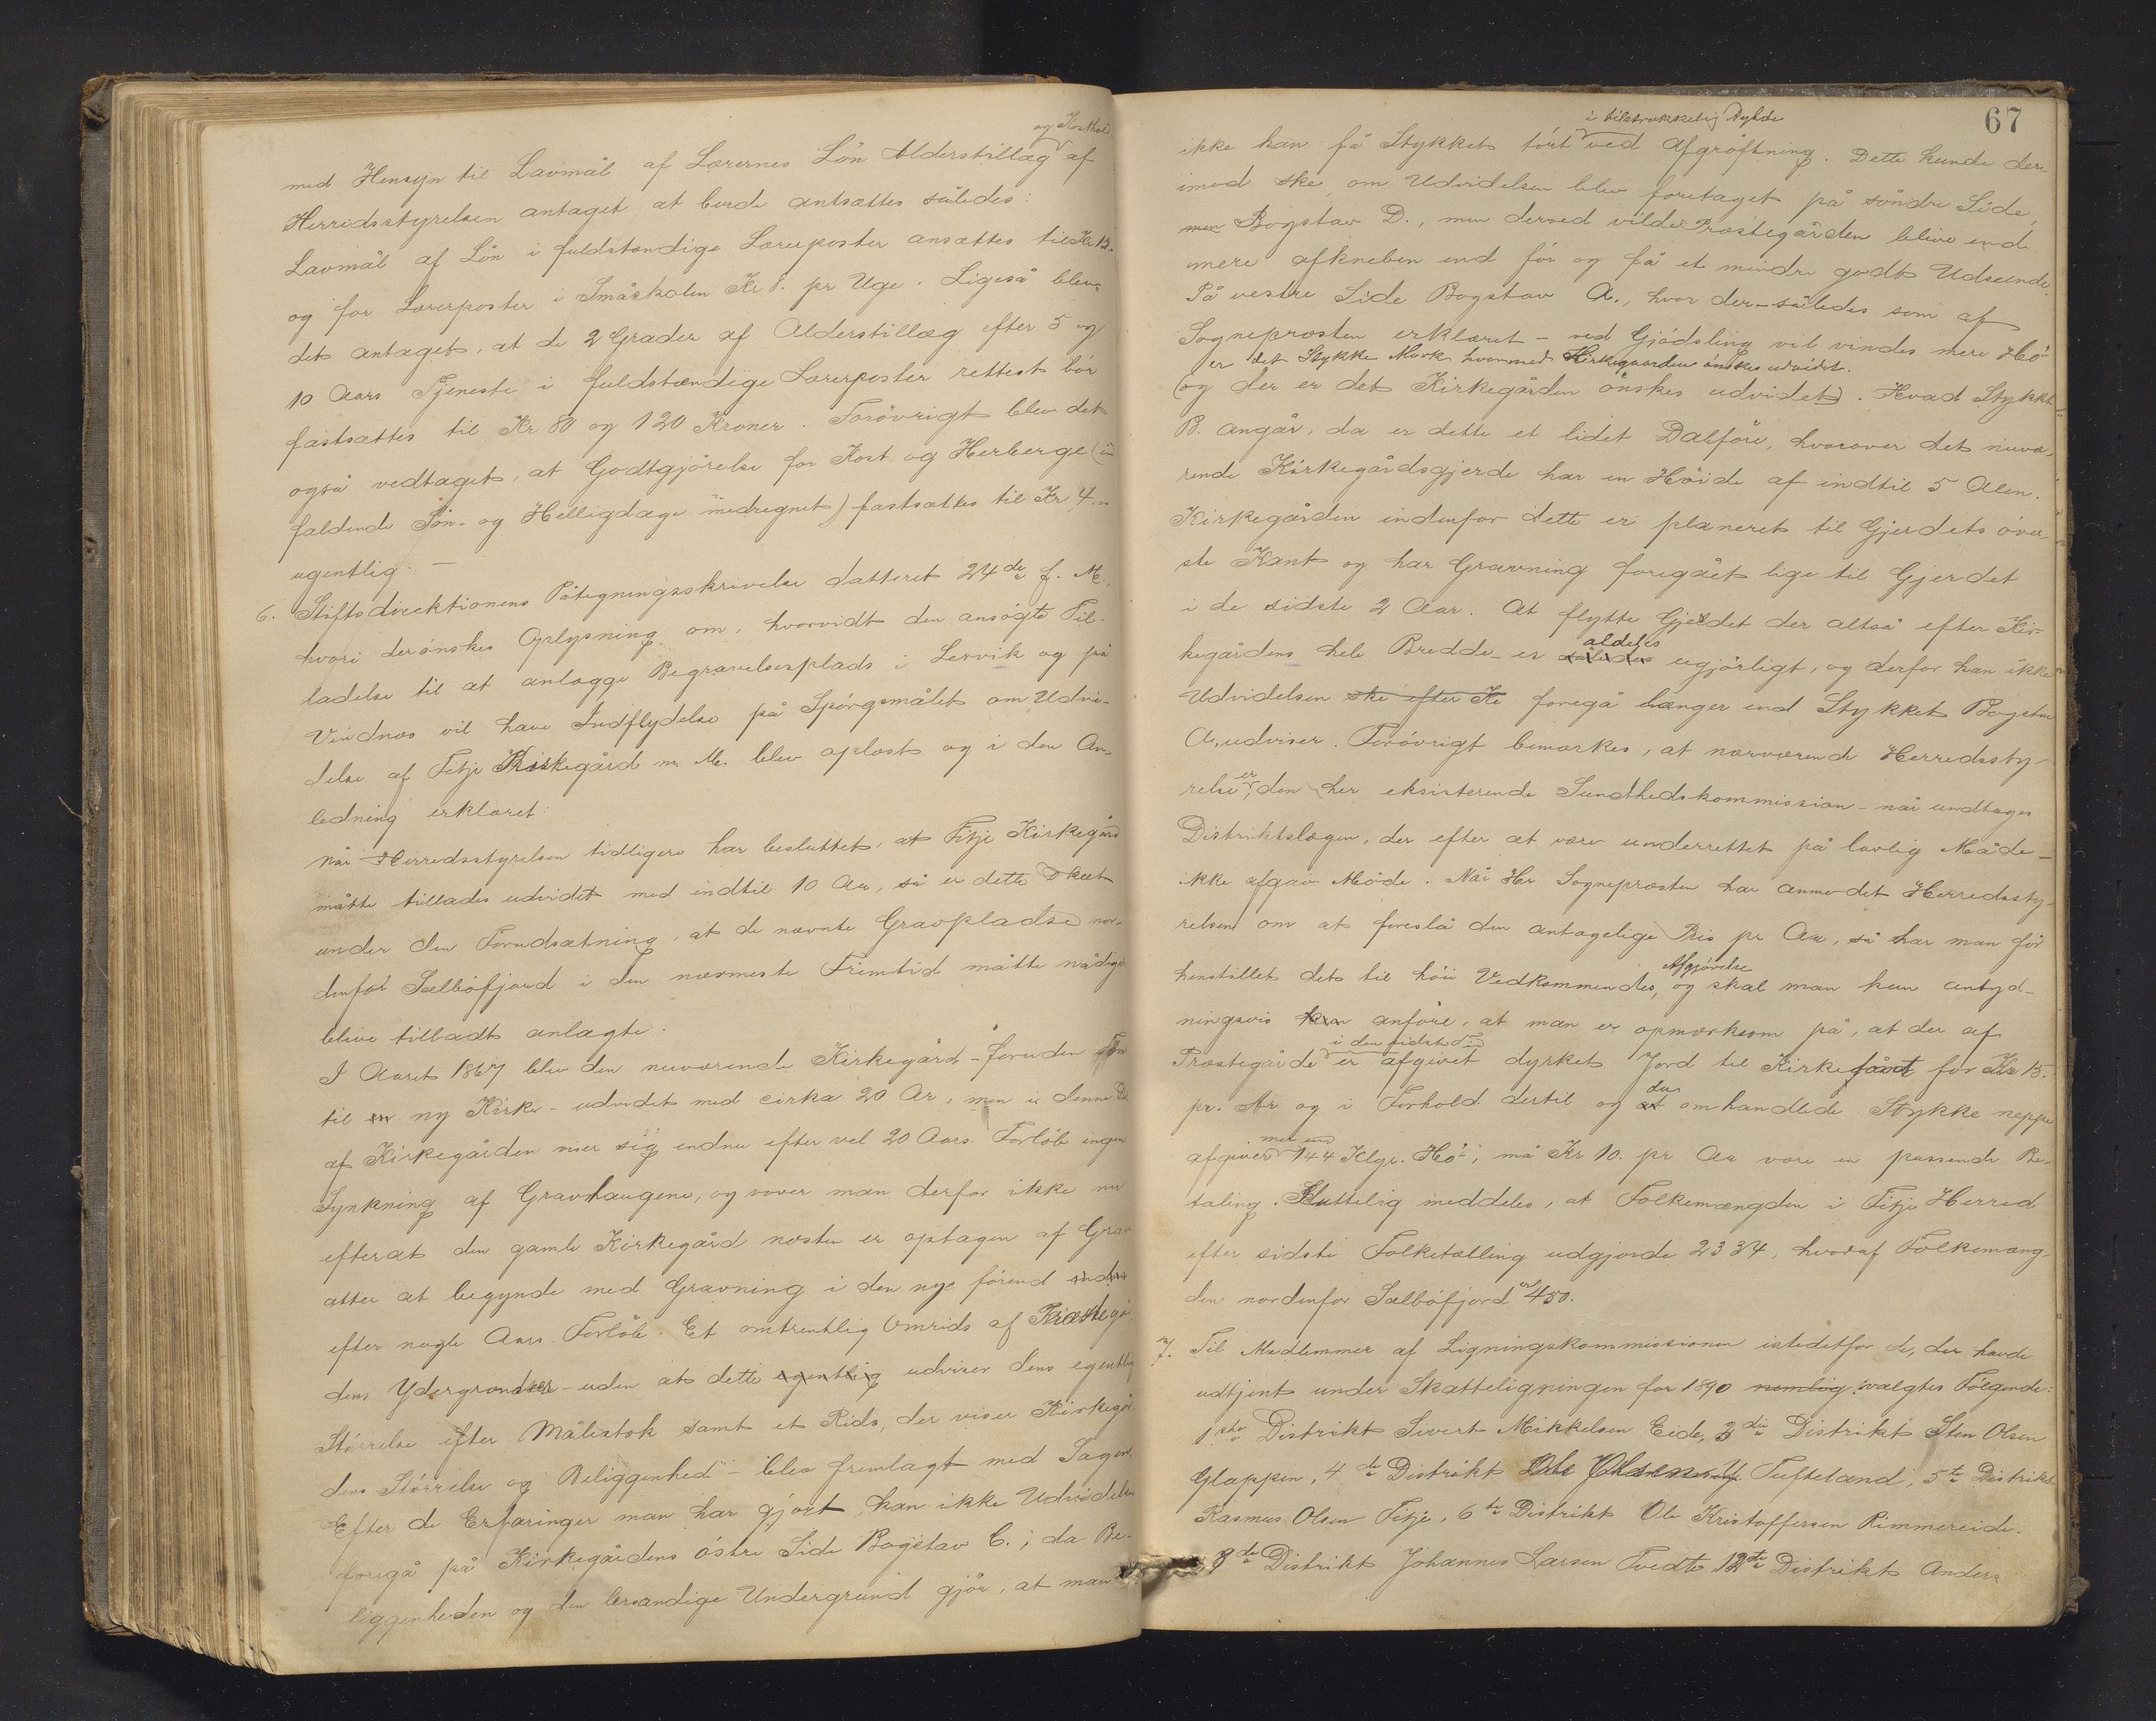 og Kosthold
med Hensyn til Lavmål af Lærernes Løn Alderstillæg af
Herredsstyrelsen antaget at burde antsættes således:
Lavmål af Løn i fuldstændige Lærerposter ansættes til Kr 12.
og for Lærerposter i Småskolen Kr 8. pr Uge. Ligeså blev
det antaget, at de 2 Grader af Alderstillæg efter 5 og
10 Aars Tjeneste i fuldstændige Lærerposter rettest bör
fastsættes til Kr 80 og 120 Kroner. Forövrigt blev det
også vedtaget, at Godtgjörelse for Kost og Herberge (in
faldende Søn- og Helligdage medregnet) fastsættes til Kr 4.
ugentlig. –
6. Stiftsdirektionens Påtegningsskrivelse datteret 24de f. M.,
hvori der ønskes Oplysning om, hvorvidt den ansögte Til-
ladelse til at anlægge Begravelsesplads i Lervik og på
Vindnæs vil have Indflydelse på Spörgsmålet om Udvi-
delse af Fitje Kirkegård m. M. blev oplæst og i den An-
ledning erklæret:
når Herredsstyrelsen tidligere har besluttet, at Fitje Kirkegård
måtte tillades udvidet med indtil 10 Ar, så er dette skeet
under den Forudsætning, at de nævnte Gravpladse nor-
denfor Selböfjord i den nærmeste Fremtid måtte nådigst
blive tilladt anlagte.
I Aaret 1867 blev den nuværende Kirkegård – foruden Tom
til en ny Kirke – udvidet med cirka 20 Ar, men i denne Del
af Kirkegården viser sig endnu efter vel 20 Aars Forløb ingen
Synkning af Gravhaugene, og vover man derfor ikke nu
efterat den gamle Kirkegård næsten er optagen af Grav
atter at begynde med Gravning i den nye förend endnu
efter nogle Aars Forløb. Et omtrentlig Omrids af Præstegår-
dens Ydergrændser – uden at dette egentlig udviser dens egentlig
Störrelse efter Målestok samt et Rids, der viser Kirkegår-
dens Störrelse og Beliggenhed – blev fremlagt med Sagen.
Efter de Erfaringer man har gjort, kan ikke Udvidelsen
foregå på Kirkegårdens östre Side Bogstav C.; da Be-
liggenheden og den løssandige Undergrund gjör, at man
67
i tilstrækkelig Dybde
ikke kan få Stykket tört ved Afgröftning. Dette kunde der-
imod ske, om Udvidelsen blev foretaget på söndre Side,
men Bogstav D., men derved vilde Præstegården blive end
mere afkneben end för og få et mindre godt Udseende.
På vestre Side Bogstav A., hvor der – således som af
Sognepræsten erklæret – ved Gjödsling vil vindes mere Hö
er det Stykke Mark hvormed Kirkegaarden önskes udvidet.
(og der er det Kirkegården önskes udvidet). Hvad Stykket
B. angår, da er dette et lidet Dalföre, hvorover det nuvæ-
rende Kirkegårdsgjerde har en Höide af indtil 5 Alen.
Kirkegården indenfor dette er planeret til Gjerdets över-
ste Kant og har Gravning foregået lige til Gjerdet
i de sidste 2 Aar. At flytte Gjerdet der altså efter Kir-
aldeles
kegårdens hele Bredde – er således ugjörligt, og derfor kan ikke
Udvidelsen ske efter Ki foregå længer end Stykket Bogstav
A. udviser. Forövrigt bemærkes, at nærværende Herredssty-
relse er den her eksisterende Sundhedskommission – når undtages
Distriktslægen, der efter at være underrettet på lovlig Måde –
ikke afgav Möde. Når Hr Sognepræsten har anmodet Herredssty-
relsen om at foreslå den antagelige Pris pr Ar, så har man för
Afgjörelse
henstillet det til höie Vedkommendes, og skal man kun antyd-
ningsvis kun anföre, at man er opmærksom på, at der af
i den sidste Tid
Præstegårde er afgivet dyrket Jord til Kirketomt for Kr 15.
pr. Ar og i Forhold dertil og at det omhandlede Stykke neppe
mer end
afgiver 144 Klgr. Hö; må Kr 10. pr Ar være en passende Be-
taling. Sluttelig meddeles, at Folkemængden i Fitje Herred
efter sidste Folketælling udgjorde 2334, hvoraf Folkemæng-
den nordenfor Selböfjord er 450.
7. Til Medlemmer af Ligningskommissionen istedetfor de, der havde
udtjent under Skatteligningen for 1890 nemlig: valgtes Fölgende:
1ste Distrikt Sivert Mikkelsen Eide, 3die Distrikt Sten Olsen
Glappen, 4de Distrikt Ole Tufteland, 5te Distrikt
Rasmus Olsen Fitje, 6te Distrikt Ole Kristoffersen Rimmereide.
8de Distrikt Johannes Larsen Tvedte 12te Distrikt Anders